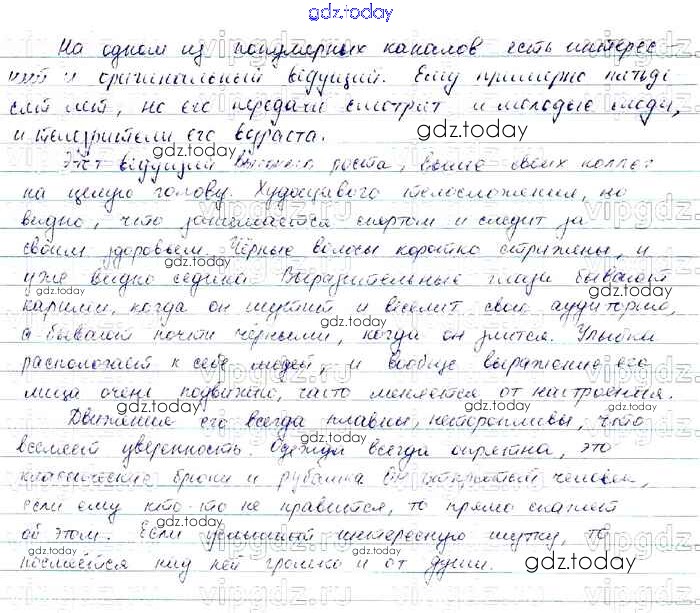 gdz.today
На одном из популярных каналов есть интерес
ный и оригинальный ведущий. Ему примерно пятьде
сят лет, но его передачи смотрят и молодые люди,
и телезрители его возраста.
gdz.today
gdz.today
Этот ведущий высокого роста, выше своих коллег
на целую голову. Худощавого телосложения, но
видно, что занимается спортом и следит за
своим здоровьем. Чёрные волосы коротко стрижены, и
уже видно седина. Выразительные глаза бывают
карими, когда он шутит и веселит свою аудиторию,
а бывают почти чёрными, когда он злится. Улыбка
располагает к себе людей, и вообще выражение его
лица очень подвижно, часто меняется от настроения.
Движения его всегда плавны, неторопливы, что
вселяет уверенность. Одежда всегда опрятна, это
классические брюки и рубашка. Он открытый человек,
если ему кто-то не нравится, то прямо скажет
об этом. Если услышит интересную шутку, то
посмеётся над ней громко и от души.
gdz.today